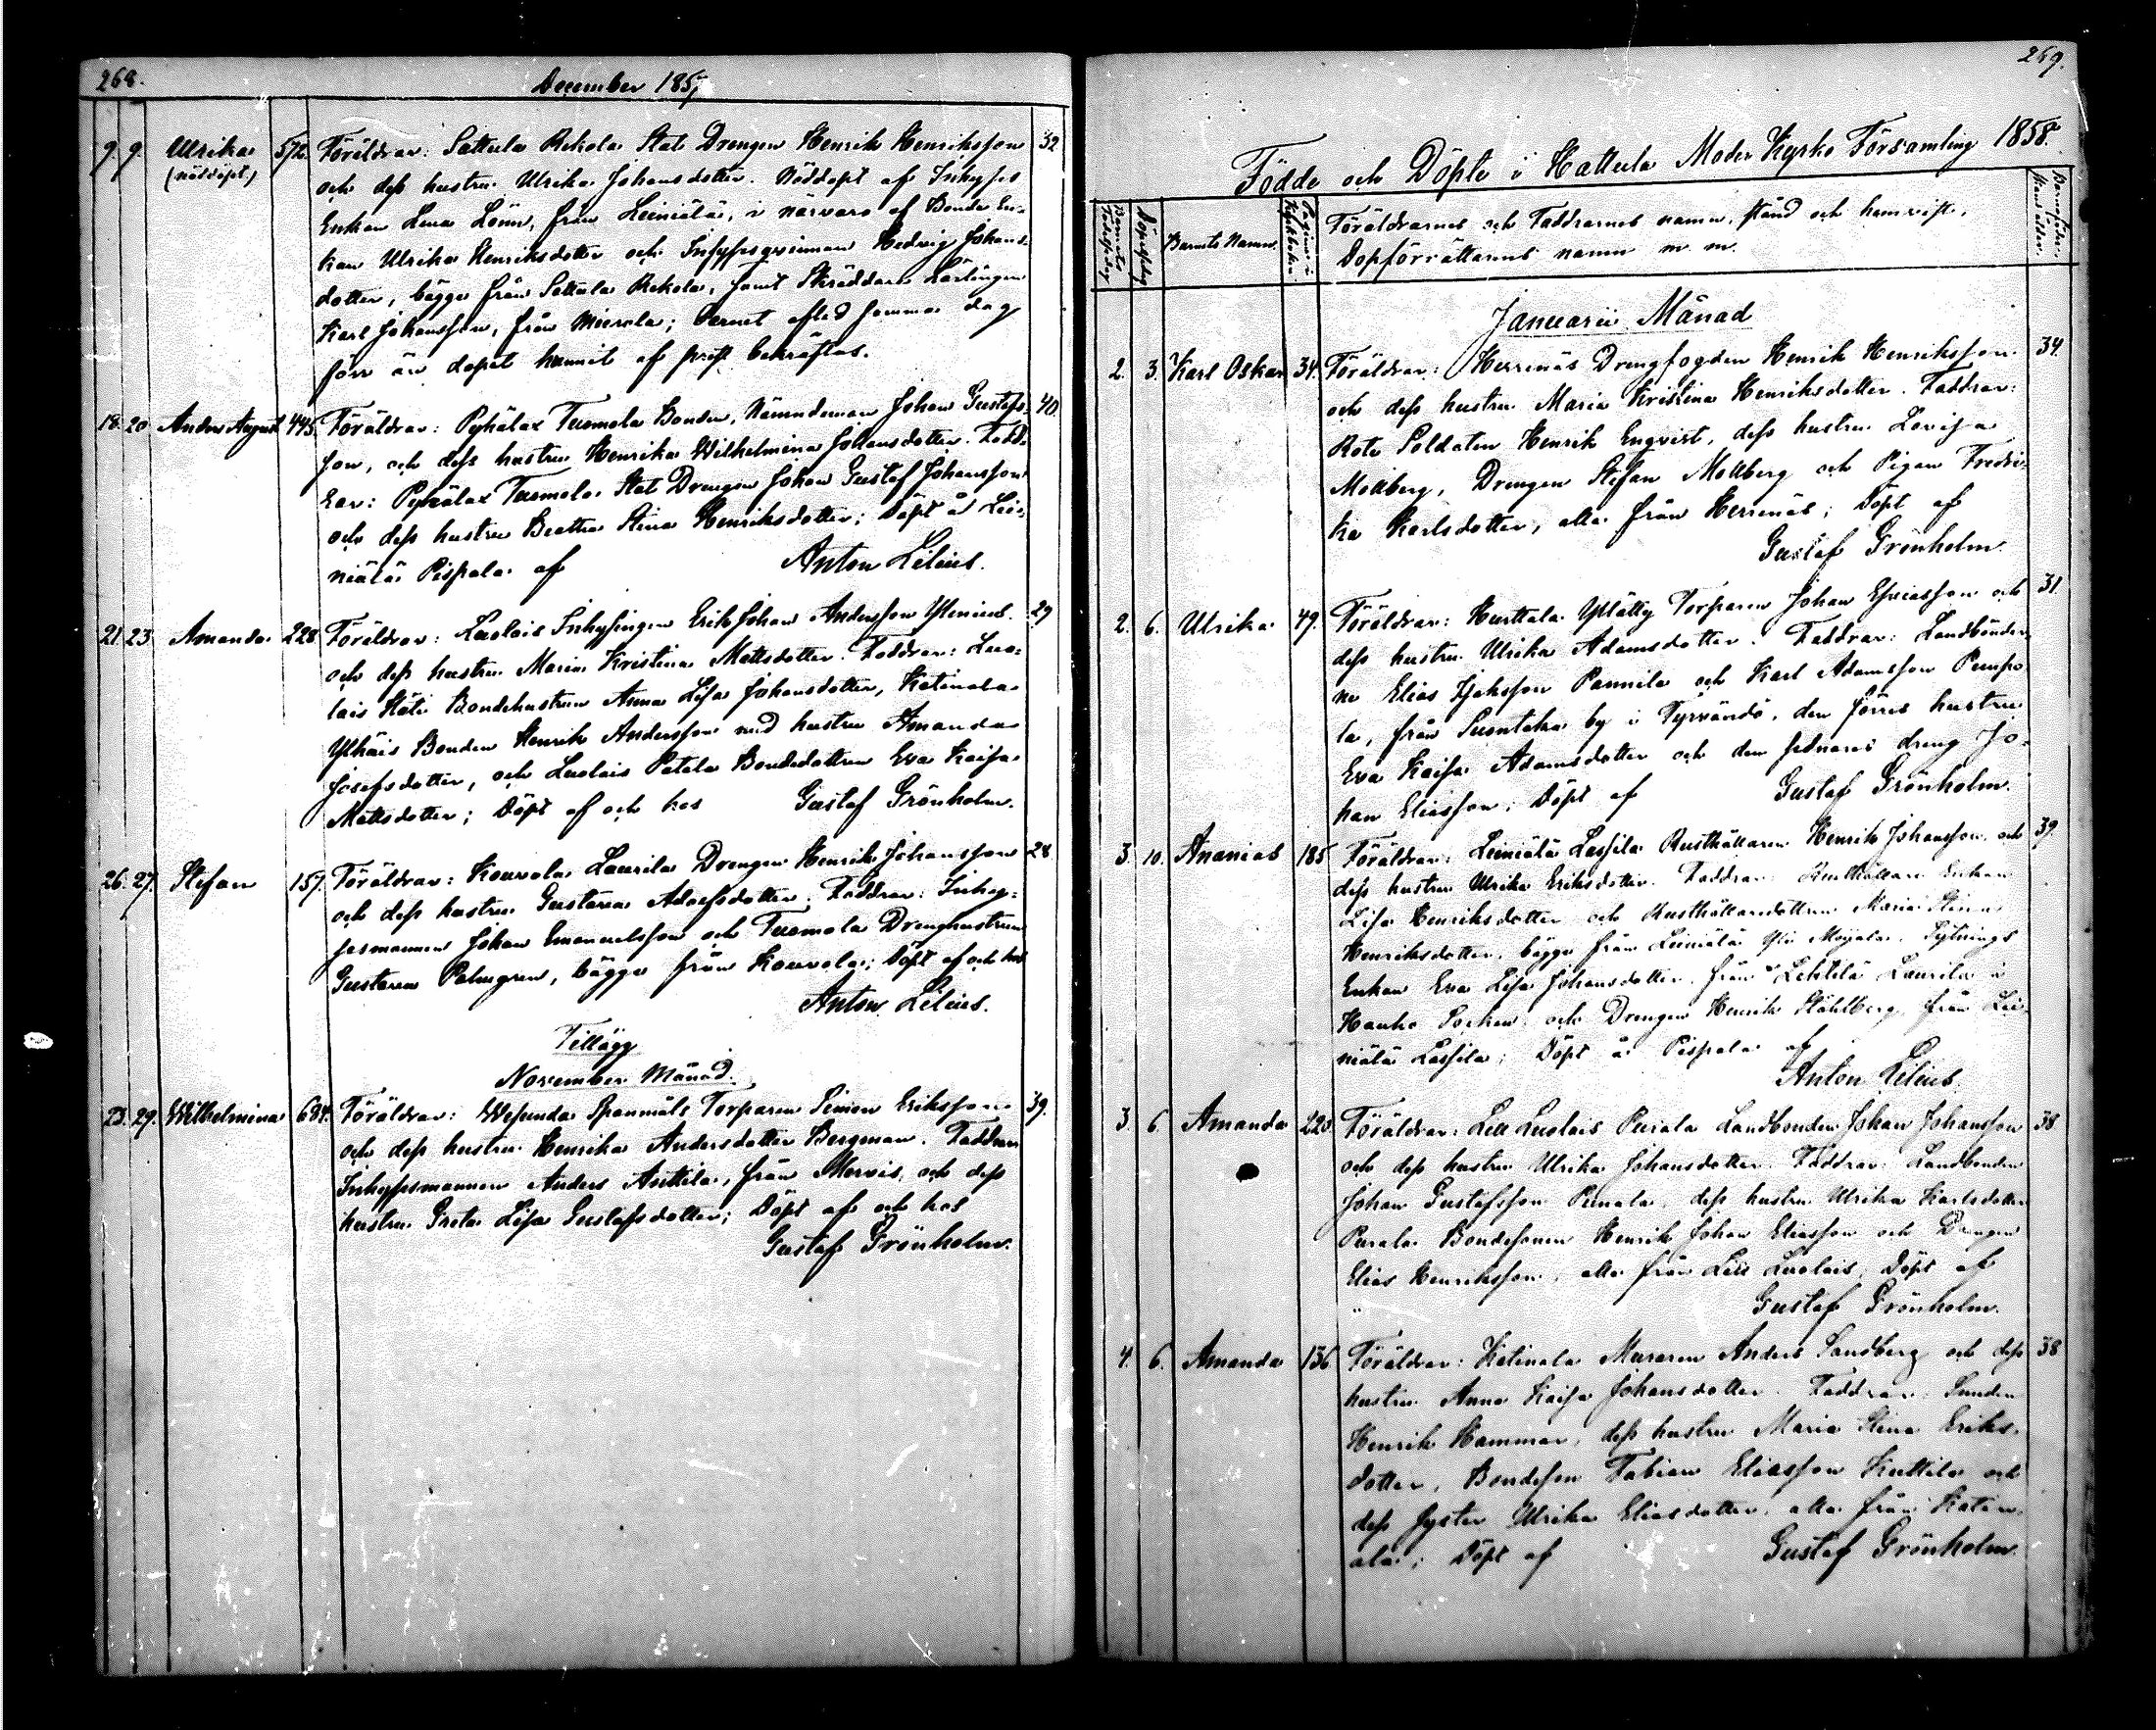 268.
December 1857
9. 9. Ulrika 572. Föräldrar: Sattula Rekola Stats Drengen Henrik Henriksson 32
(nöddöpt) och dess hustru Ulrika Johansdotter. Nöddöpt af Inhyses
Enkan Lena Lönn, från Leiniälä, i närvaro af Bonde En-
kan Ulrika Henriksdotter och Inhysesqvinnan Hedvig Johans-
dotter, bägge från Sattula Rekola, samt Skräddare Lärlingen
Karl Johansson, från Mierola; Barnet afled samma dag
förr än dopet hunnit af prest bekräftas.
18. 20. Anders August 445. Föräldrar: Pyhälax Tuomola Bonden, Nämndeman Johan Gustafs- 40.
son, och dess hustru Henrika Wilhelmina Johansdotter. Fadd-
rar: Pyhälax Tuomola Stat Drengen Johan Gustaf Johansson
och dess hustru Beatha Stina Henriksdotter; Döpt å Lei-
niälä Pispala af Anton Lilius.
21. 23. Amanda 228. Föräldrar: Luolais Inhysingen Erik Johan Andersson Ylenius 29
och dess hustru Maria Kristina Mattsdotter. Faddrar: Luo-
lais Häti Bondehustrun Anna Lisa Johansdotter, Katinala
Ylhäis Bonden Henrik Andersson med hustru Amanda
Josefsdotter, och Luolais Patala Bondedottren Eva Kaisa
Mattsdotter; Döpt af och hos Gustaf Grönholm.
26. 27. Stefan 157. Föräldrar: Kouvola Laurila Drengen Henrik Johansson 28.
och dess hustru Gustava Adolfsdotter. Faddrar: Inhy-
sesmannen Johan Emanuelsson och Tuomola Drenghustrun
Gustava Palmgren, bägge från Kouvola; Döpt af och hos
Anton Lilius.
Tillägg
November Månad.
23. 29. Wilhelmina 684. Föräldrar: Wesunda Spannmåls Torparen Simon Eriksson 39.
och dess hustru Henrika Andersdotter Bergman. Faddrar
Inhysesmannen Anders Anttila, från Mervis, och dess
hustru Greta Lisa Gustafsdotter; Döpt af och hos
Gustaf Grönholm.
269.
Födde och Döpte i Hattula Moder Kyrko Församling 1858.
Barnets Födelsedag Döpelsedag Barnets Namn. Pagina i Kyrkboken. Föräldrarnes och Faddrarnes namn, stånd och hemvist,
Dopförrättarens namn m. m.
Januarii Månad
2. 3. Karl Oskar 34. Föräldrar: Herrnäs Drengfogden Henrik Henriksson 34.
och dess hustru Maria Kristina Henriksdotter. Faddrar:
Rote Soldaten Henrik Engvist, dess hustru Lovisa
Mollberg, Drengen Stefan Mollberg och Pigan Fredri-
ka Karlsdotter, alla från Herrnäs; Döpt af
Gustaf Grönholm.
2. 6. Ulrika 49. Föräldrar: Hurttala Yllätty Torparen Johan Esaiasson och 31.
dess hustru Ulrika Adamsdotter. Faddrar: Landbönder-
ne Elias Isaksson Pannila och Karl Adamsson Pumpo-
la, från Suontaka by i Tyrvändö, den förres hustru
Eva Kaisa Adamsdotter och den sednares dreng Jo-
han Eliasson; Döpt af Gustaf Grönholm.
3. 10. Ananias 185. Föräldrar: Leiniälä Lassila Rusthållaren Henrik Johansson och 39
dess hustru Ulrika Eriksdotter. Faddrar: Rusthållare Enkan
Lisa Henriksdotter och Rusthållaredottren Maria Stina
Henriksdotter, bägge från Leiniälä Yli Moijala, Sytnings
Enkan Eva Lisa Johansdotter, från Lehtilä Laurila i
Hauho Socken, och Drengen Henrik Ståhlberg från Lei-
niälä Lassila; Döpt å Pispala af
Anton Lilius.
3. 6. Amanda 223 Föräldrar: Lill Luolais Purala Landbonden Johan Johansson 38
och dess hustru Ulrika Johansdotter. Faddrar: Landbonden
Johan Gustafsson Purala, dess hustru Ulrika Karlsdotter
Purala Bondesonen Henrik Johan Eliasson och Drengen
Elias Henriksson, alla från Lill Luolais; Döpt af
Gustaf Grönholm.
4. 6. Amanda 136 Föräldrar: Katinala Muraren Anders Sandberg och dess 38
hustru Anna Kaisa Johansdotter. Faddrar:
Henrik Hammar, dess hustru Maria Stina Eriks-
dotter, Bondeson Fabian Eliasson Kuttila och
dess syster Ulrika Eliasdotter, alla från Katin-
ala; Döpt af Gustaf Grönholm.